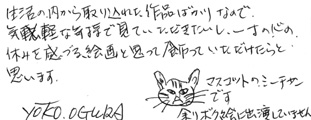 生活の内から取り入れた作品ばかりなので、
気軽な気持で見ていただきたいし、一寸の心の
休みを感づる絵画と思って飾っていただけたらと
思います。
マスコットのシーチャン
です
YOKO.OGURA
余りボク絵に出演していません